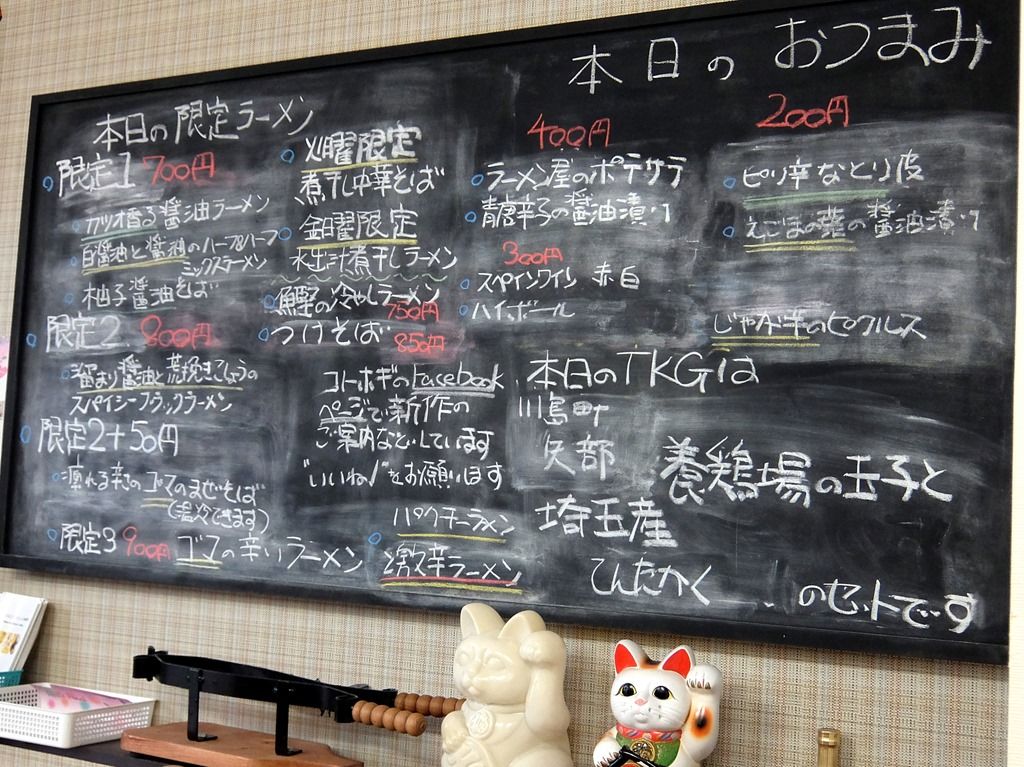 本日の限定ラーメン
限定1 700円
カツオ香る醤油ラーメン
白醤油と醤油のハーフ&ハーフ
ミックスラーメン
柚子醤油そば
限定2 800円
溜まり醤油と荒挽きこしょうの
スパイシーブラックラーメン
限定2+50円
痺れる辛さのゴマのまぜそば
(温冷できます)
限定3 900円 ゴマの辛いラーメン
火曜限定
煮干し中華そば
金曜限定
水出汁煮干しラーメン
鰹の冷やしラーメン
750円
つけそば 850円
コトホギのFacebook
ページで新作の
ご案内などしています
"いいね!"をお願いします
パクチーラーメン
激辛ラーメン
本日のおつまみ
400円
ラーメン屋のポテサラ
青唐辛子の醤油漬け
300円
スペインワイン 赤白
ハイボール
200円
ピリ辛なとり皮
えごまの葉の醤油漬け
じゃが芋のピクルス
本日のTKGは
川島町
矢部 養鶏場の玉子と
埼玉産
ひたかく のセットです